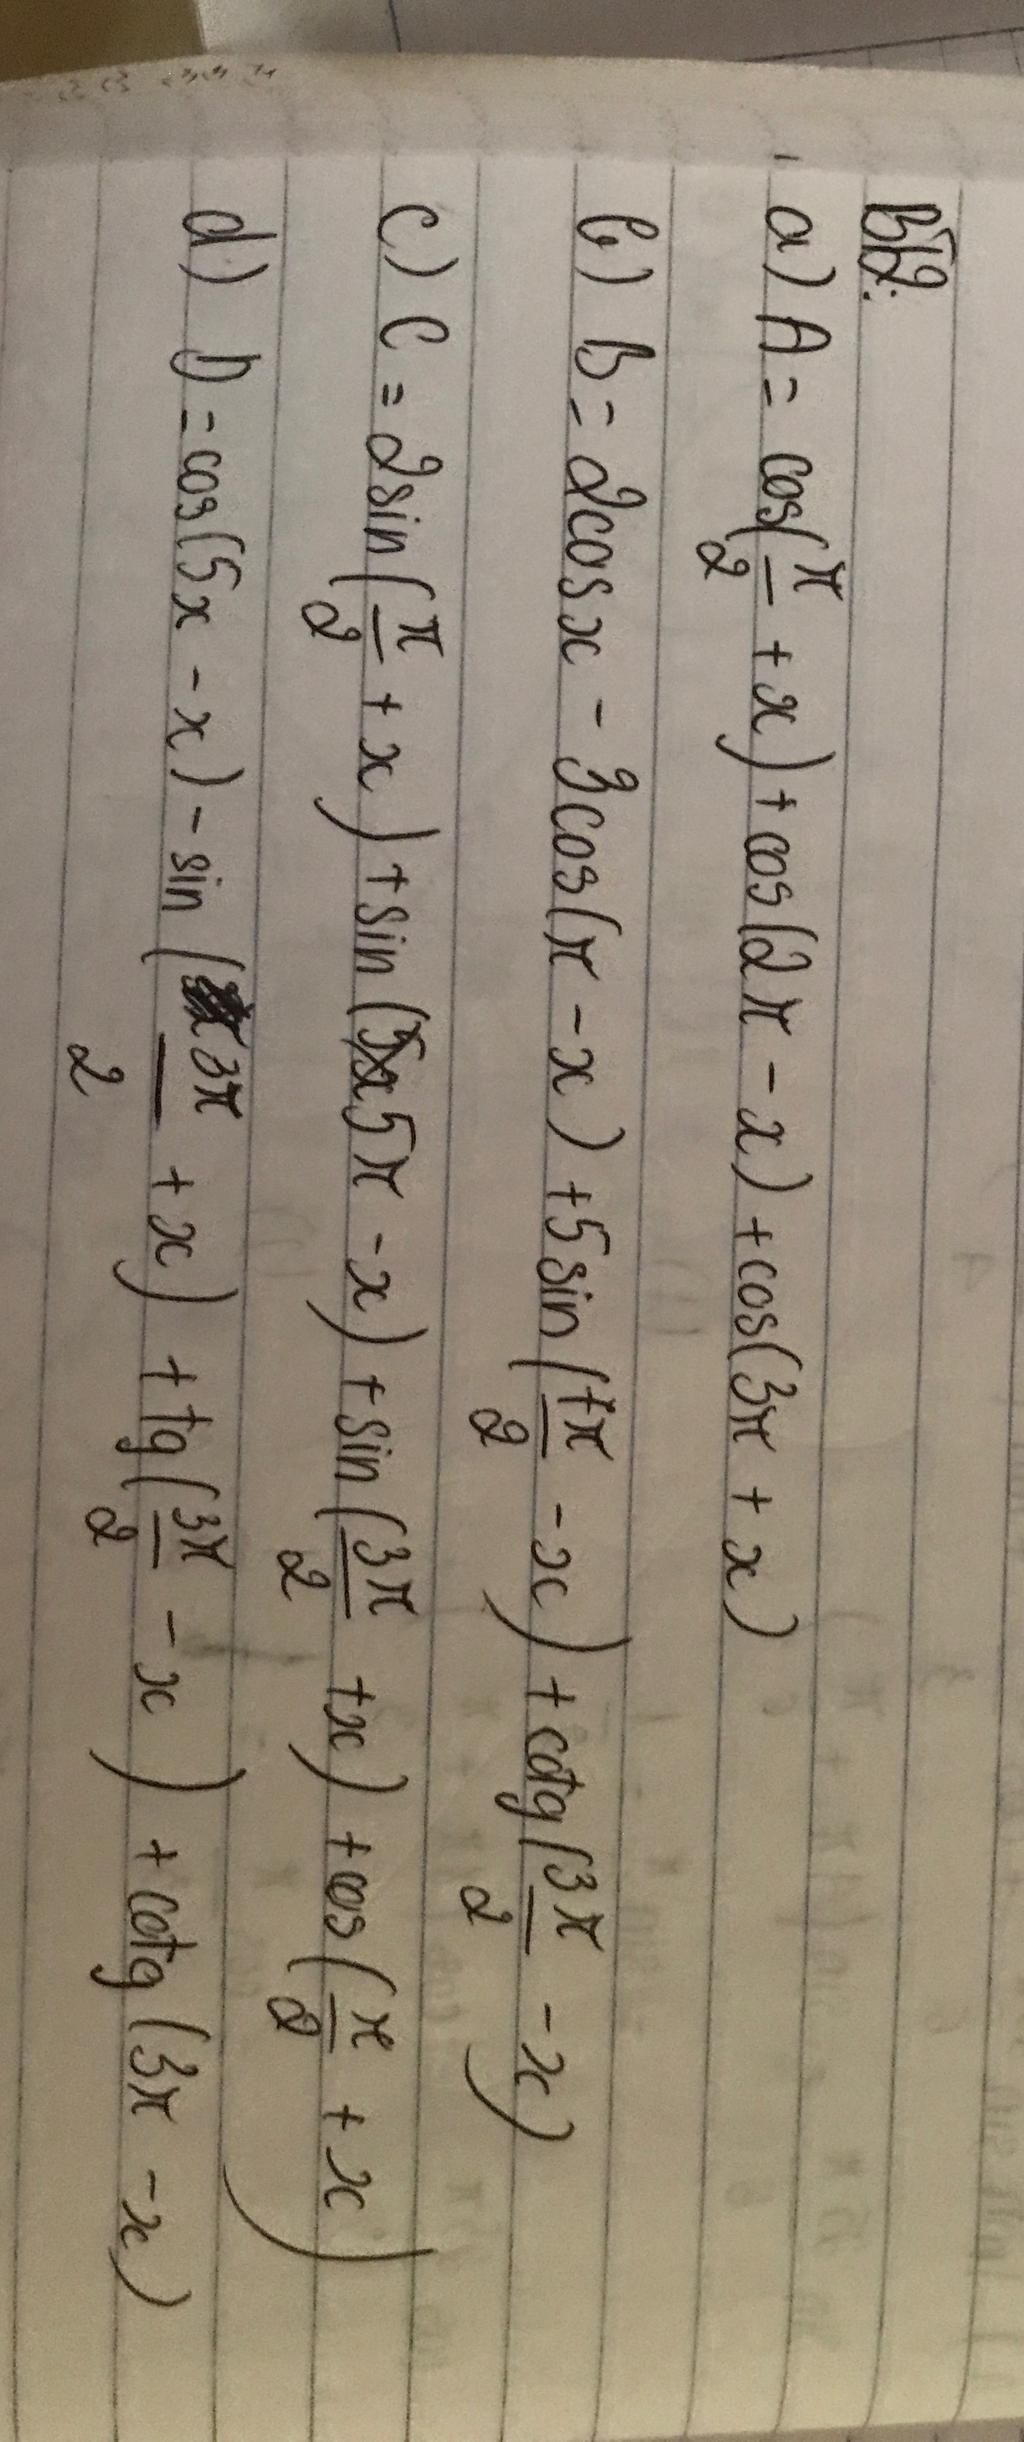 BT2:
a) A = cos(π/2 + x) + cos(2π - x) + cos(3π + x)
b) B = 2cosx - 3cos(π - x) + 5sin(7π/2 - x) + cotg(3π/2 - x)
c) C = 2sin(π/2 + x) + sin(5π - x) + sin(3π/2 + x) + cos(π/2 + x)
d) D = cos(5x - x) - sin(3π/2 + x) + tg(3π/2 - x) + cotg(3π - x)